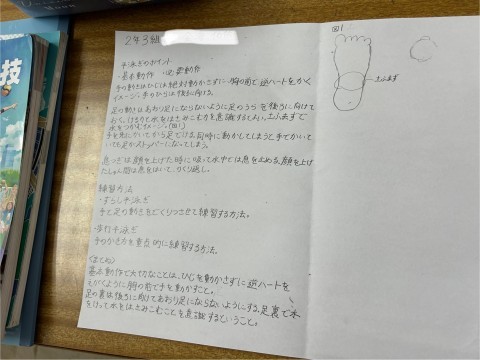 技
2年3組
平泳ぎのポイント
・基本動作・必要動作
手の動きはひじは絶対動かさずに胸の前で逆ハートをかく
イメージ。手のひらは後ろに向ける。
足の動きはあおり足にならないように足のうらを後ろに向けて
おく。けるので水をはさみこむ力を意識するとよい。土ふまずで
水をつかむイメージ。(図1)
手を先にかいてから足でける。同時に動かしてしまうと手でかいて
いても足がストッパーになってしまう。
息つぎは顔を上げた時に吸って水中では息を止める。顔を上げ
たしゅん間は息をはいて、のくり返し。
練習方法
・ずらし平泳ぎ
手と足の動きをごくりつさせて練習する方法。
・歩行平泳ぎ
手のかき方を重点的に練習する方法。
〈まとめ〉
基本動作で大切なことは、ひじを動かさずに逆ハートを
えがくように胸の前で手を動かすこと。
足の裏は後ろに向けてあおり足にならないようにする、足裏で水
をけって水をはさみこむことを意識するということ。
図1
土ふまず